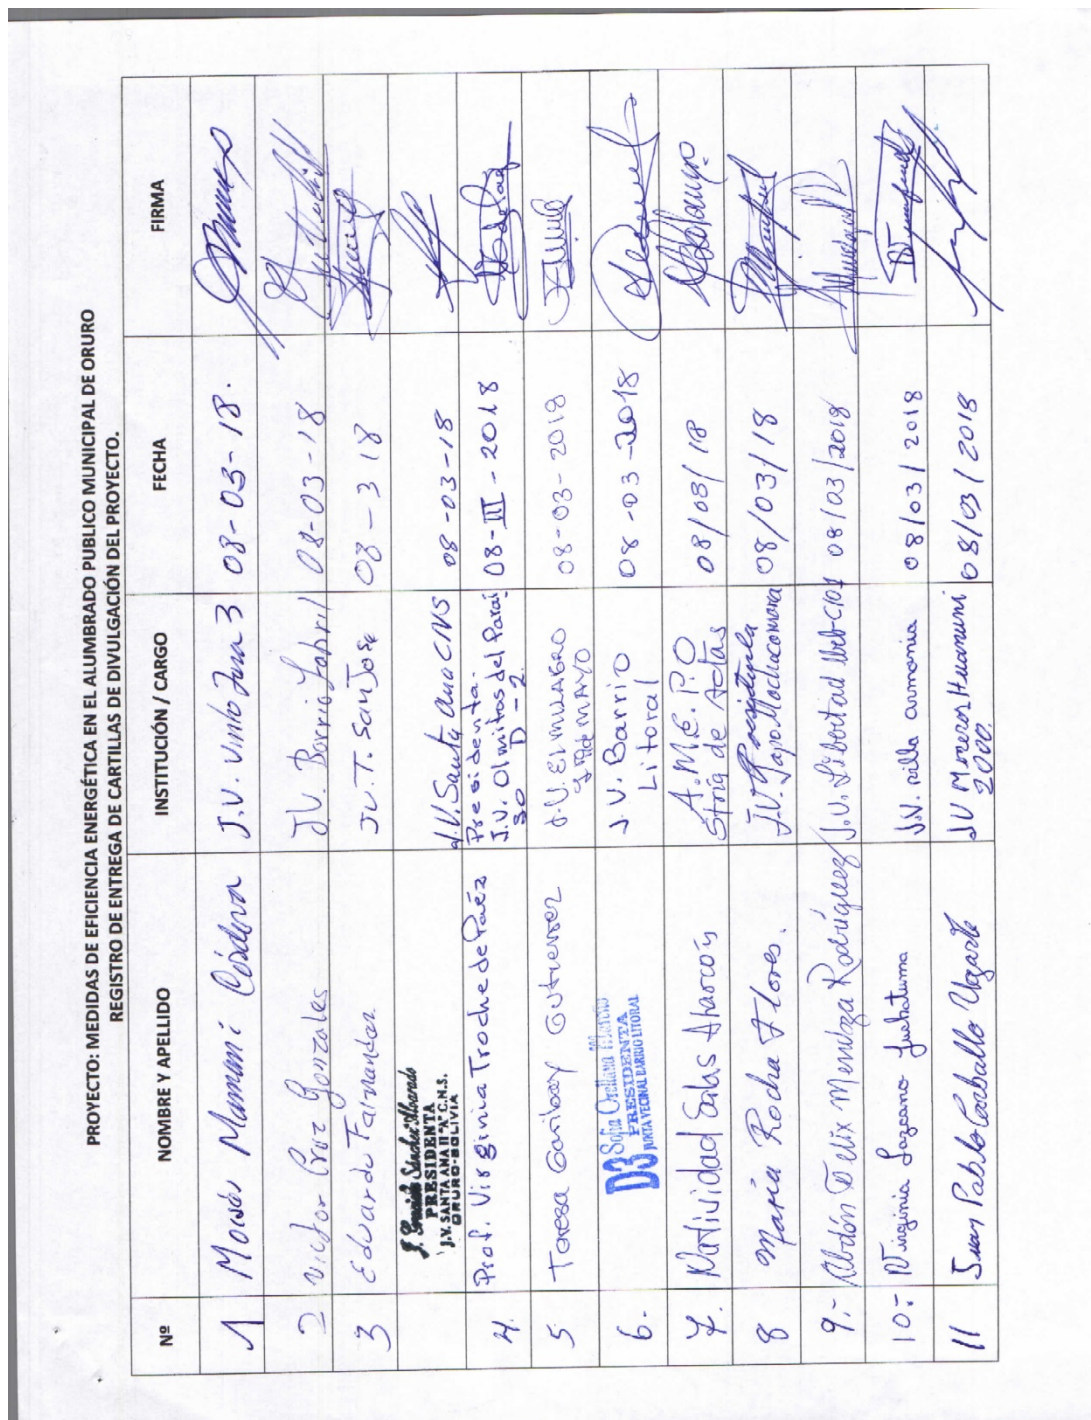 PROYECTO: MEDIDAS DE EFICIENCIA ENERGÉTICA EN EL ALUMBRADO PUBLICO MUNICIPAL DE ORURO
REGISTRO DE ENTREGA DE CARTILLAS DE DIVULGACIÓN DEL PROYECTO.
Nº NOMBRE Y APELLIDO INSTITUCIÓN / CARGO FECHA FIRMA
1 Moisés Mamani Córdova J.V. Vinto Jusa 3 08-03-18.
2 Victor Cruz Gonzales J.V. Barrio Fabril 08-03-18
3 Eduardo Fernandez J.V.T. San Jose 08-3 18
Sanchez Alvarado
PRESIDENTA
J.V. SANTA ANA II "A" C.N.S.
ORURO-BOLIVIA
J.V. Santa Ana CNS 08-03-18
4. Prof. Virginia Troche de Paéz Presidenta. 08-III-2018
J.V. Olmitos del Parai
30 D-2.
5 Teresa Garibay Gutierrez J.V. El MILAGRO 08-03-2018
1º de MAYO
6. D3 Sofia Orellana
PRESIDENTA
JUNTA VECINAL BARRIO LITORAL
J.V. Barrio 08-03-2018
Litoral
7. Natividad Salas Alarcón A.M.E.P.O 08/08/18
Stria de Actas
8 María Rocha Flores. Presidenta 08/03/18
J.V. Japo Moclucomara
9.- Abdón Felix Mendoza Rodríguez J.V. Libertad 08/03/2018
10.- Virginia Lazcano J.V. villa armonia 08/03/2018
11 Juan Pablo Caraballo Ugarte JV Mineros Huanuni 08/03/2018
2000.